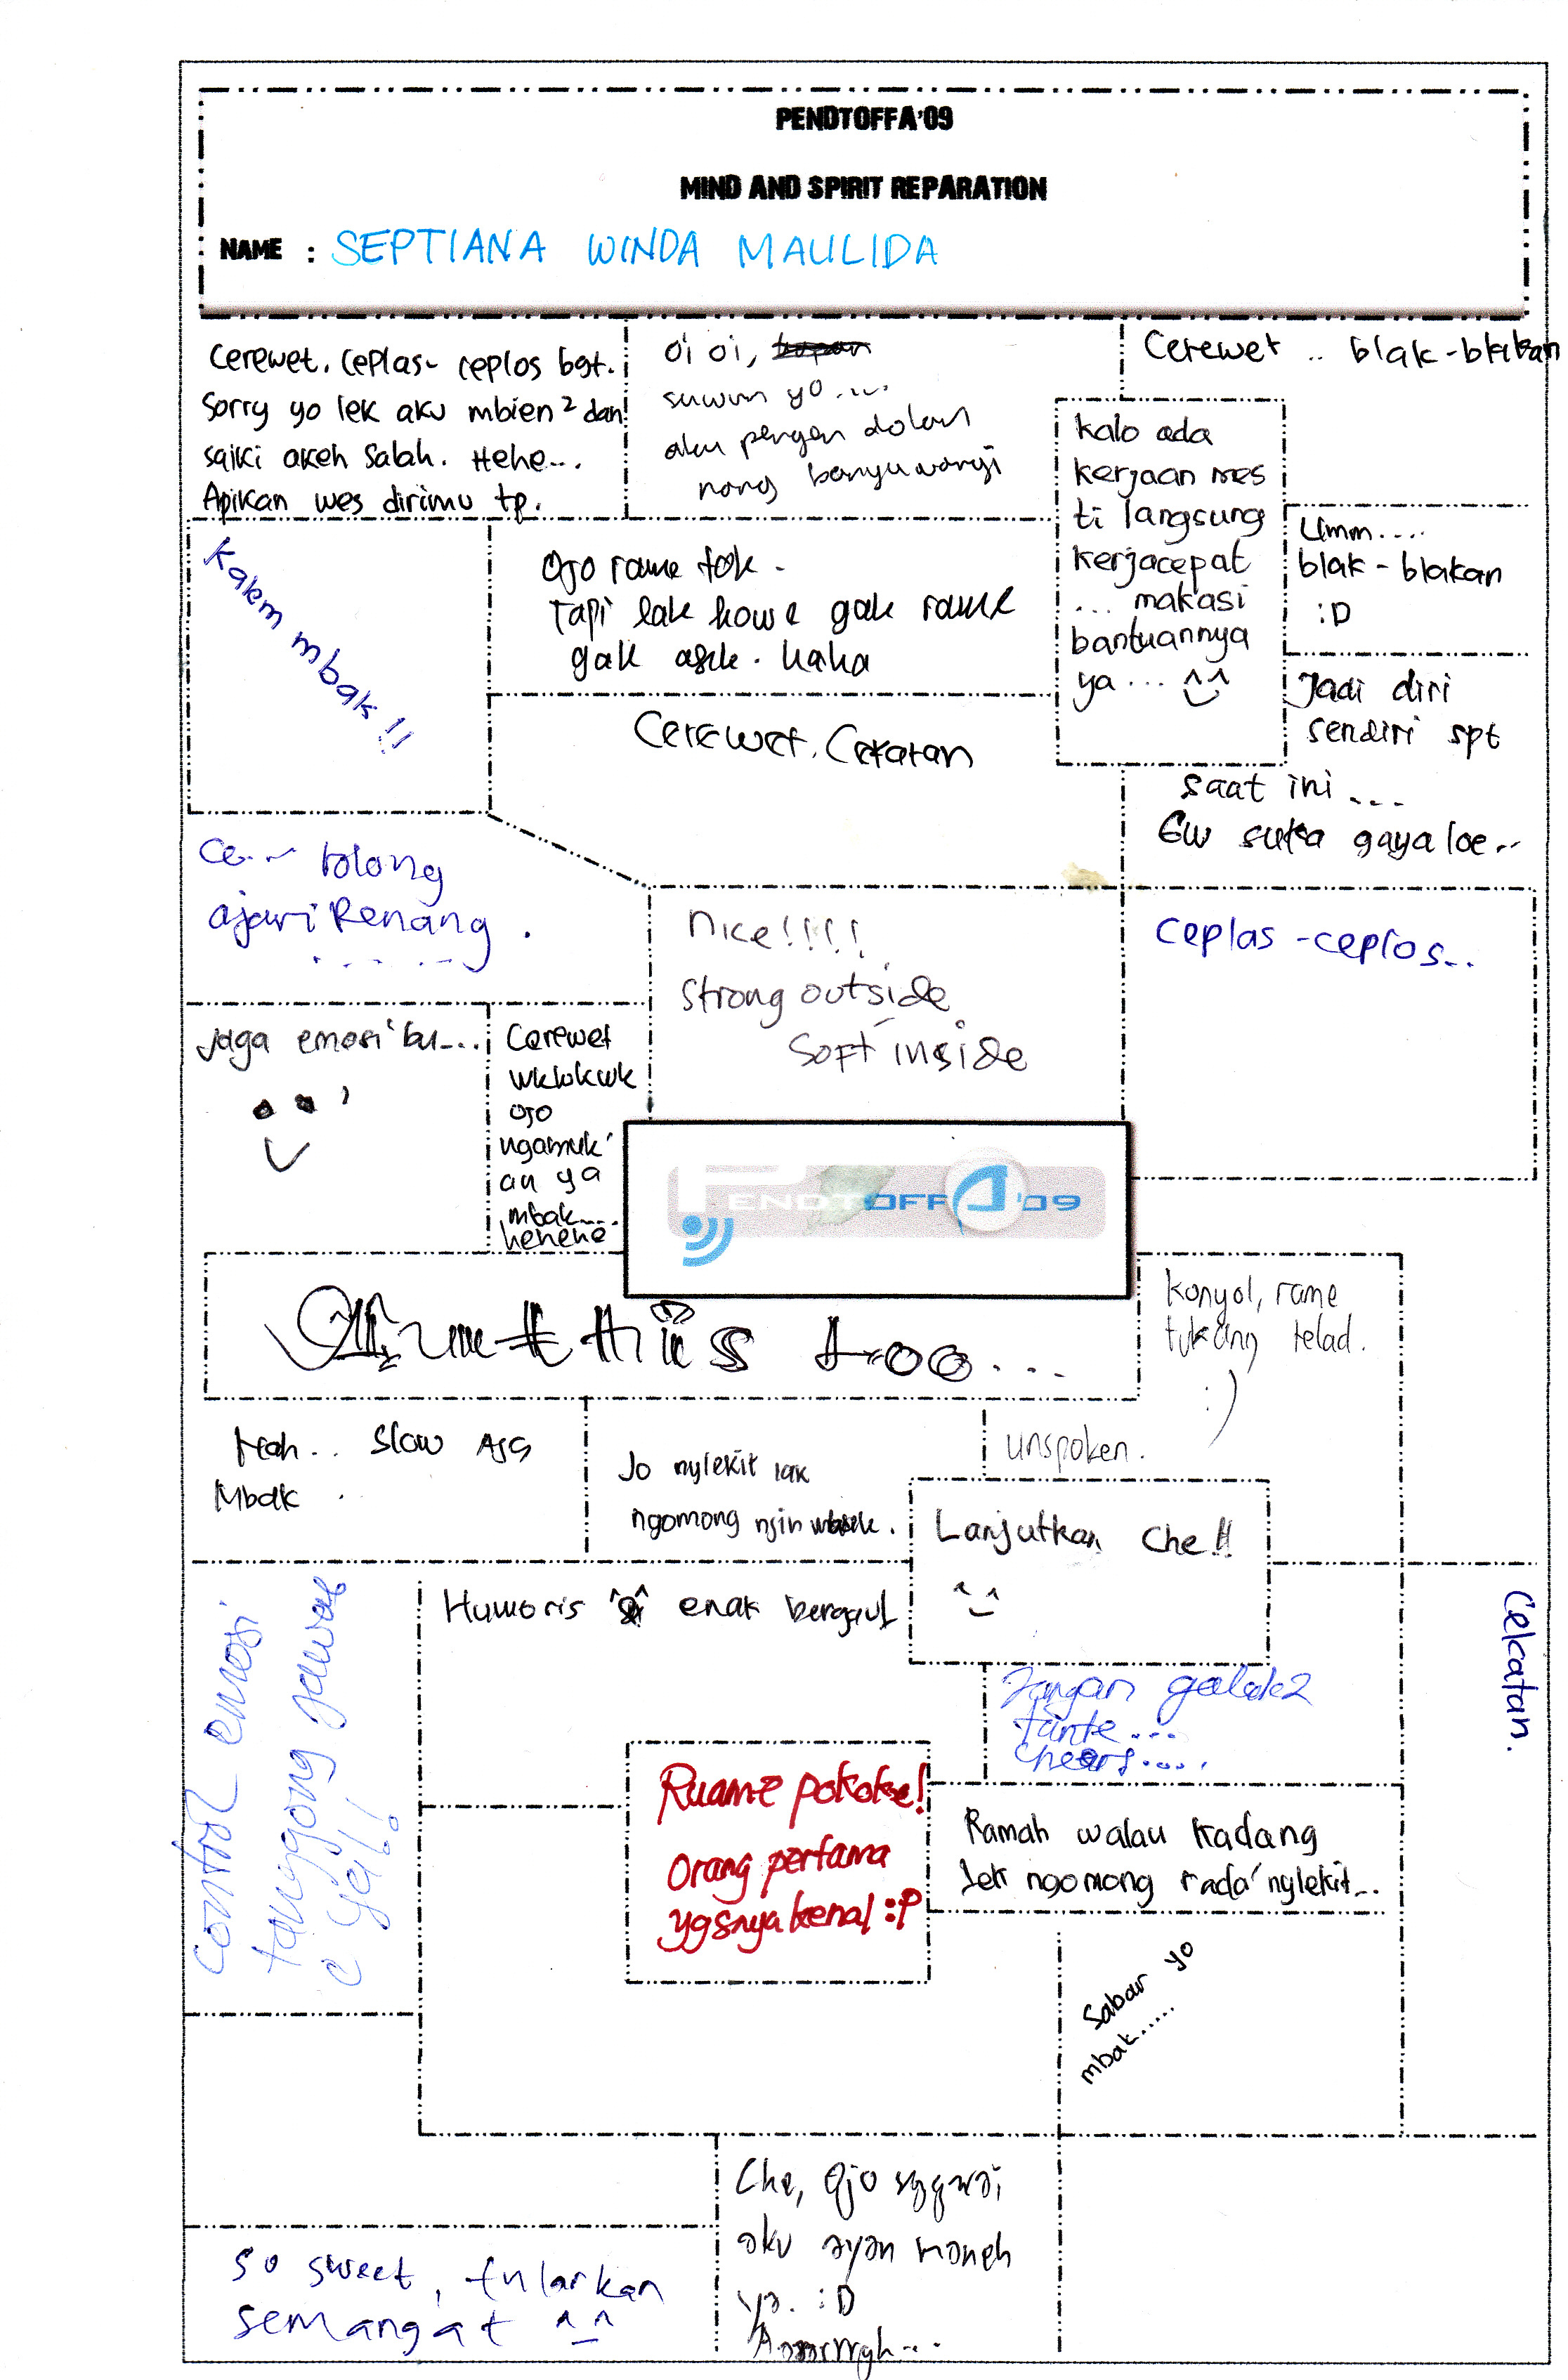 PENDTOFFA'09
MIND AND SPIRIT REPARATION
NAME : SEPTIANA WINDA MAULIDA
Cerewet. Ceplas- ceplos bgt.
Sorry yo lek aku mbien2 dan
saiki akeh salah. Hehe...
Apikan wes dirimu tp.
oi oi,
suwun yo....
aku pengen dolan
nang banyuwangi
Cerewet .. blak-blakan
kalo ada
kerjaan mes
ti langsung
kerjacepat
... makasi
bantuannya
ya... ^^
Umm....
blak-blakan
:D
Jadi diri
sendiri spt
saat ini ...
Gw suka gaya loe..
Kalem mbak!!
Ojo rame tok.
Tapi lak kowe gak rame
gak asik. haha
Cerewet. Cekatan
Ce... tolong
ajari Renang.
nice!!!!
strong outside
soft inside
Ceplas-ceplos...
jaga emosi bu...
Cerewet
wkwkwk
ojo
ngamuk'
an ya
mbak....
hehehe
PENDTOFFA'09
this too...
konyol, rame
tukang telad.
:)
Nah.. slow AJG
Mbak.
Jo nylekit lak
ngomong njih mbak.
unspoken.
Lanjutkan Che!!
^_^
control emosi
tanggong jawab
c ya!!
Humoris enak bergaul
Cekatan.
Jangan galak2
tante...
cheers.....
Ruame pokoke!
Orang pertama
ygsnya kenal :P
Ramah walau kadang
lek ngomong rada' nylekit...
Sabar yo
mbak.....
Che, Ojo
aku ayan maneh
ya. :D
so sweet, tularkan
semangat ^_^